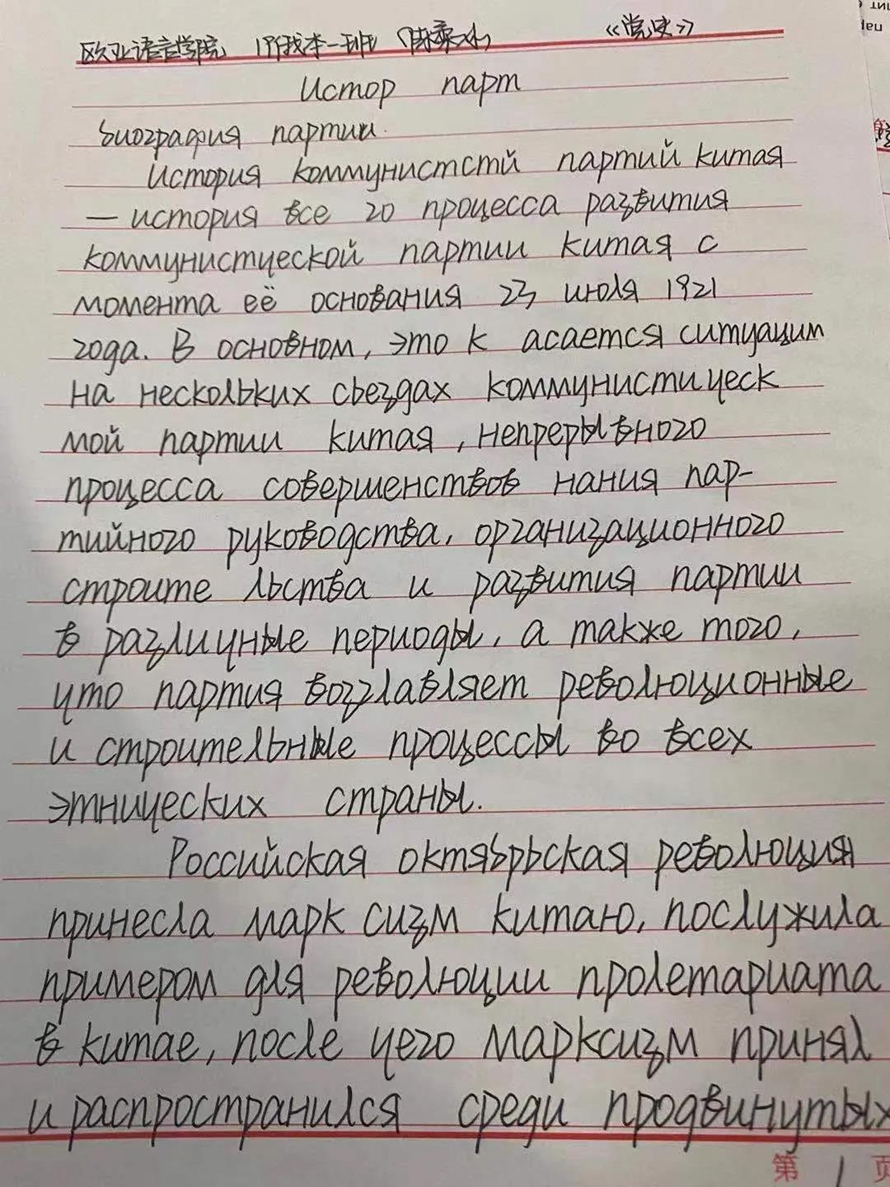 欧亚语言学院 19俄本一班 《党史》
Истор парт
Биография партии.
История коммунистстй партий китая
— история все 20 процесса развития
коммунистческой партии китая с
момента её основания 23 июля 1921
года. В основном, это к асается ситуацим
на нескольких сьездах коммунистическ
мой партии китая, непрерывного
процесса совершенствов нания пар-
тийного руководства, организационного
строите льства и развития партии
в различные периоды, а также того,
что партия возглавляет революционные
и строительные процессы во всех
этнических страны.
Российская октябрьская революция
принесла марк сизм китаю, послужила
примером для революции пролетариата
в китае, после чего марксизм принял
и распространился среди продвинутых
第 1 页